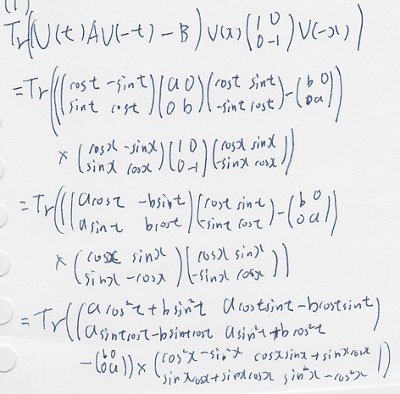 (1)
Tr((U(t)AU(-t) - B)U(x)(1 0 0 -1)U(-x))
= Tr(((cost -sint sint cost)(a 0 0 b)(cost sint -sint cost) - (b 0 0 a))
× (cosx -sinx sinx cosx)(1 0 0 -1)(cosx sinx -sinx cosx))
= Tr(((acost -bsint asint bcost)(cost sint -sint cost) - (b 0 0 a))
× (cosx sinx sinx -cosx)(cosx sinx -sinx cosx))
= Tr((acos²t + bsin²t acostsint - bcostsint asintcost - bsintcost asin²t + bcos²t)
- (b 0 0 a)) × (cos²x - sin²x cosxsinx + sinxcosx sinxcosx + sinxcosx sin²x - cos²x))